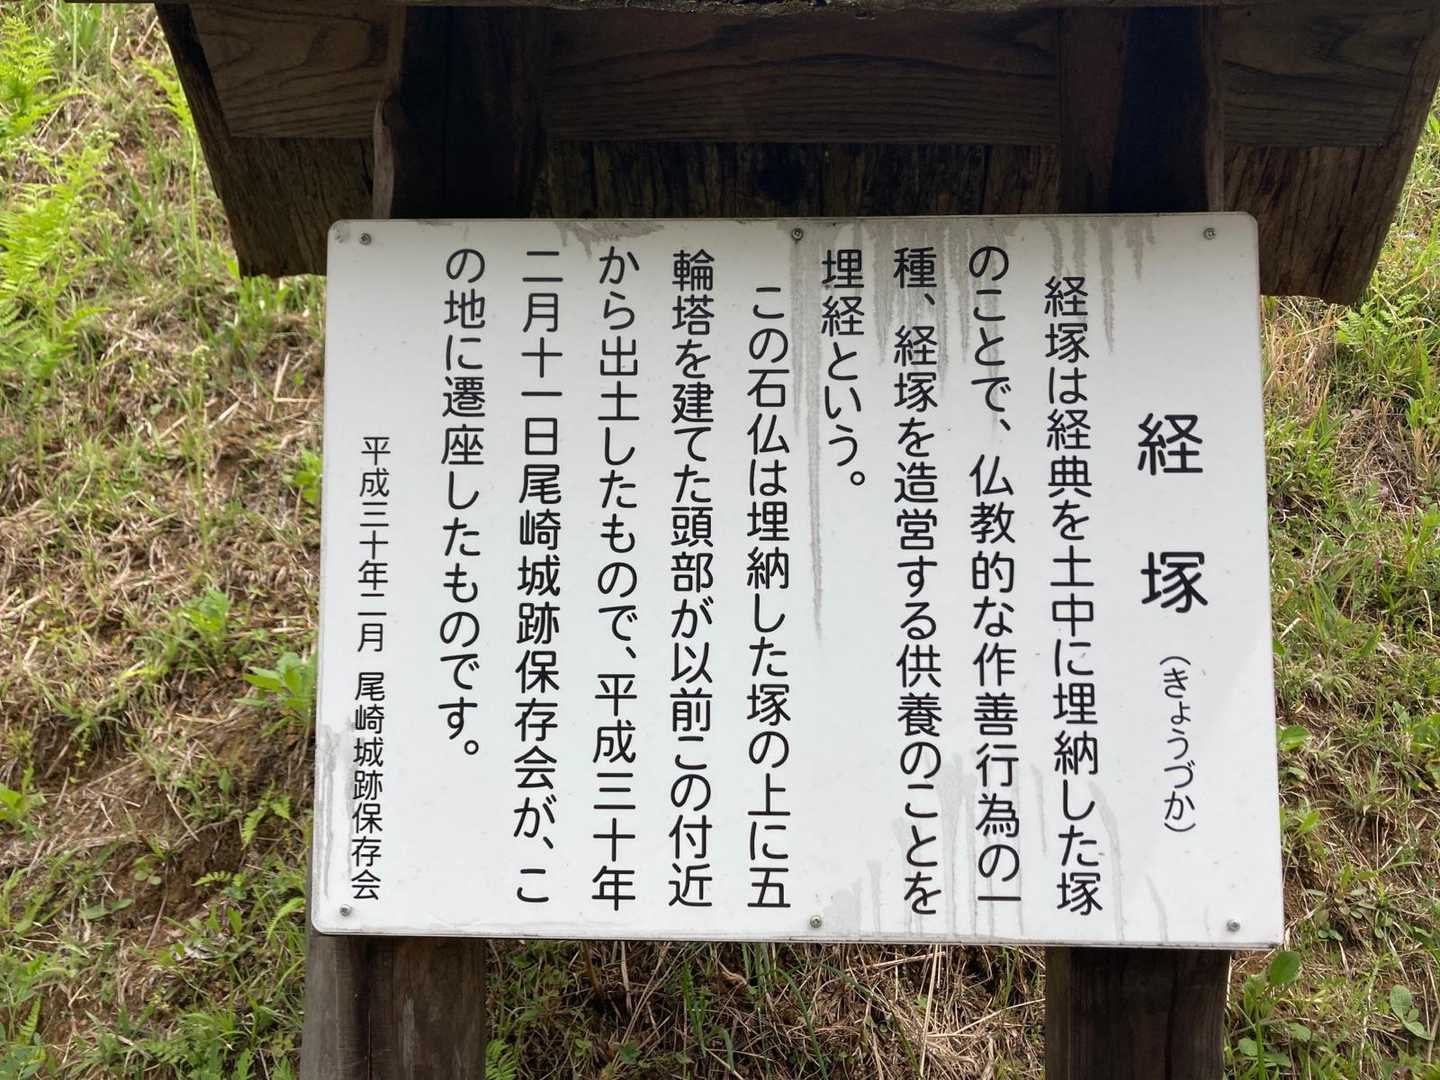 経塚（きょうづか）
経塚は経典を土中に埋納した塚
のことで、仏教的な作善行為の一
種、経塚を造営する供養のことを
埋経という。
この石仏は埋納した塚の上に五
輪塔を建てた頭部が以前この付近
から出土したもので、平成三十年
二月十一日尾崎城跡保存会が、こ
の地に遷座したものです。
平成三十年二月 尾崎城跡保存会